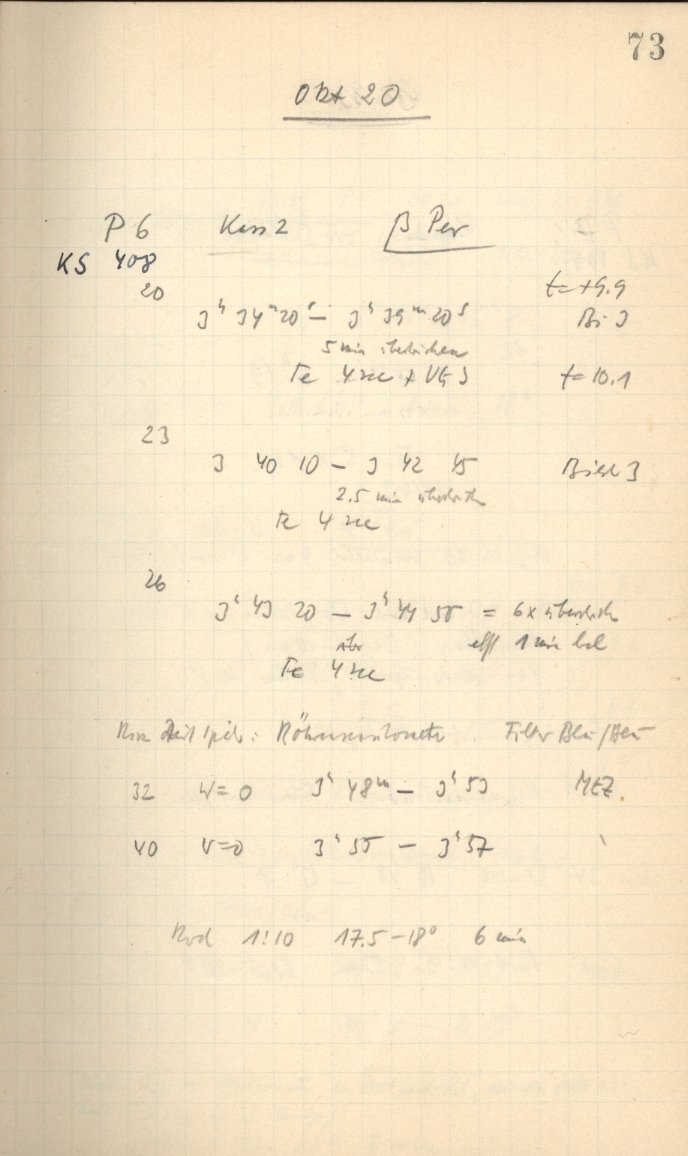 73
Okt 20
P 6 Kass 2 β Per
KS 408
20 t = +9.9
3h 34m 20s – 3h 39m 20s Bi 3
5 min
Fe 4 sec + UG 3 t = 10.1
23
3 40 10 – 3 42 45 Bild 3
2.5 min
Fe 4 sec
26
3h 43 20 – 3h 44 50 = 6x
1 min
Fe 4 sec
Filter Blau/
32 V=0 3h 48m – 3h 53 MEZ
40 V=0 3h 55 – 3h 57
Rod 1:10 17.5–18° 6 min